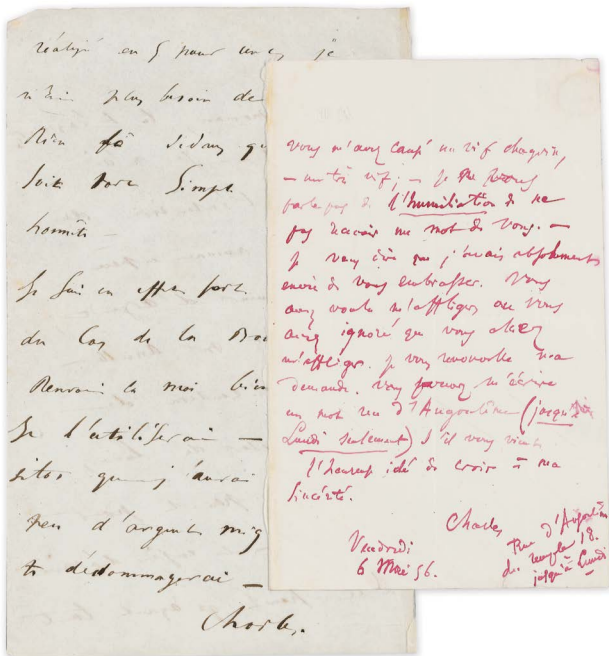 réalisé en 5 pour cent, je
plus besoin de
Rien
soit Simple
honnête
Je suis en effet
du Cas de la
Renvoie la moi bien
Je l'utiliserai —
sitôt que j'aurai
peu d'argent
te dédommagerai —
Charles.
vous m'avez causé un vif chagrin,
— un très vif; — je ne vous
parle pas de l'humiliation de ne
pas recevoir un mot de vous. —
Je vous que j'avais absolument
envie de vous embrasser. Vous
avez voulu m'affliger ou vous
avez ignoré que vous alliez
m'affliger. Je vous renouvelle ma
demande. Vous pouvez m'écrire
un mot rue d'Angoulême (jusqu'à
Lundi seulement) s'il vous vient
l'heureuse idée de croire à ma
Sincérité.
Charles
Vendredi
6 Mai 56.
Rue d'Angoulême
du temple 18.
jusqu'à Lundi